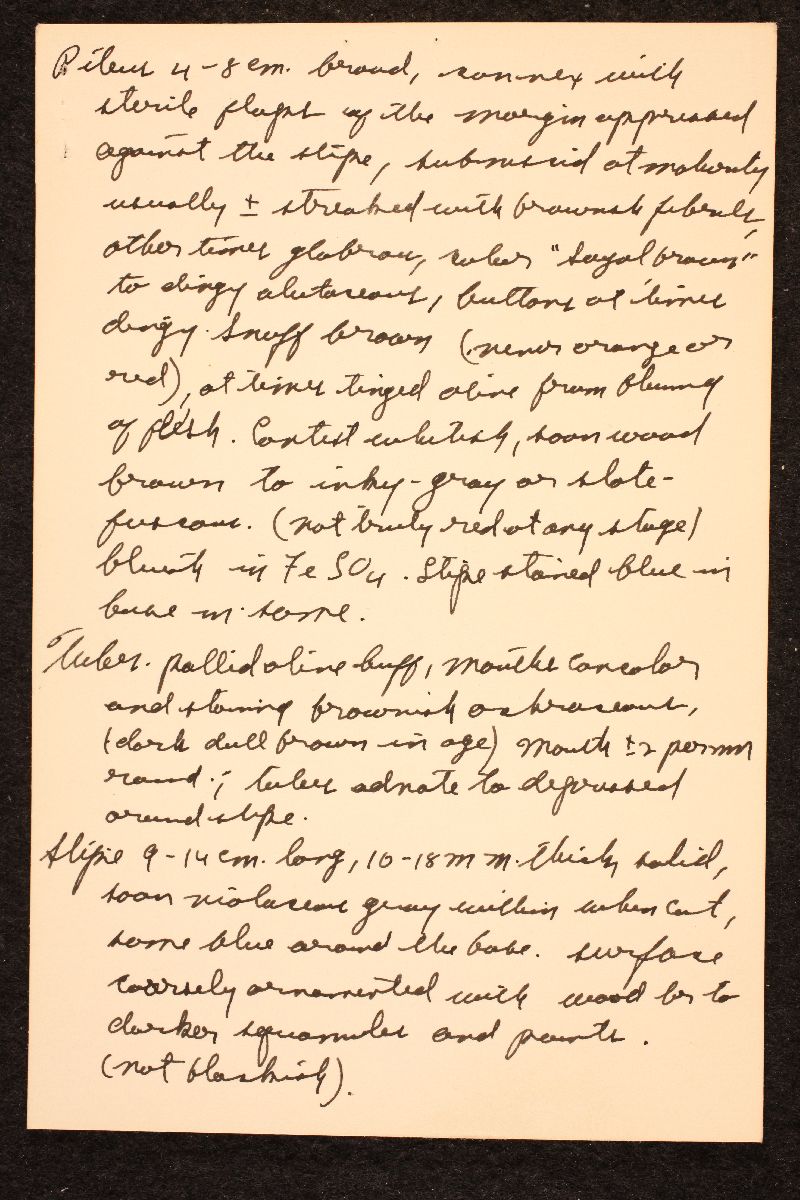 Pileus 4-8 cm. broad, convex with
sterile flaps of the margin appressed
against the stipe, subviscid at maturity
usually ± streaked with brownish fibrils,
other times glabrous, color "Sayal brown"
to dingy alutaceous, buttons at times
dingy Snuff brown (never orange or
red), at times tinged olive from bluing
of flesh. Context whitish, soon wood
brown to inky-gray or slate-
fuscous. (not truly red at any stage)
bluish in FeSO4. Stipe stained blue in
base in some.
Tubes. pallid olive buff, mouths concolor
and staining brownish ochraceous,
(dark dull brown in age) mouth ±2 per mm
round.; tubes adnate to depressed
around stipe.
Stipe 9-14 cm. long, 10-18 mm. thick, solid,
soon violaceous gray within when cut,
some blue around the base. surface
coarsely ornamented with wood br to
darker squamules and points.
(not blackish).